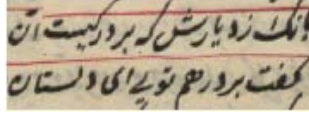 بانک زد یارش که بر در کیست آن
گفت بر در هم تویی ای دلستان